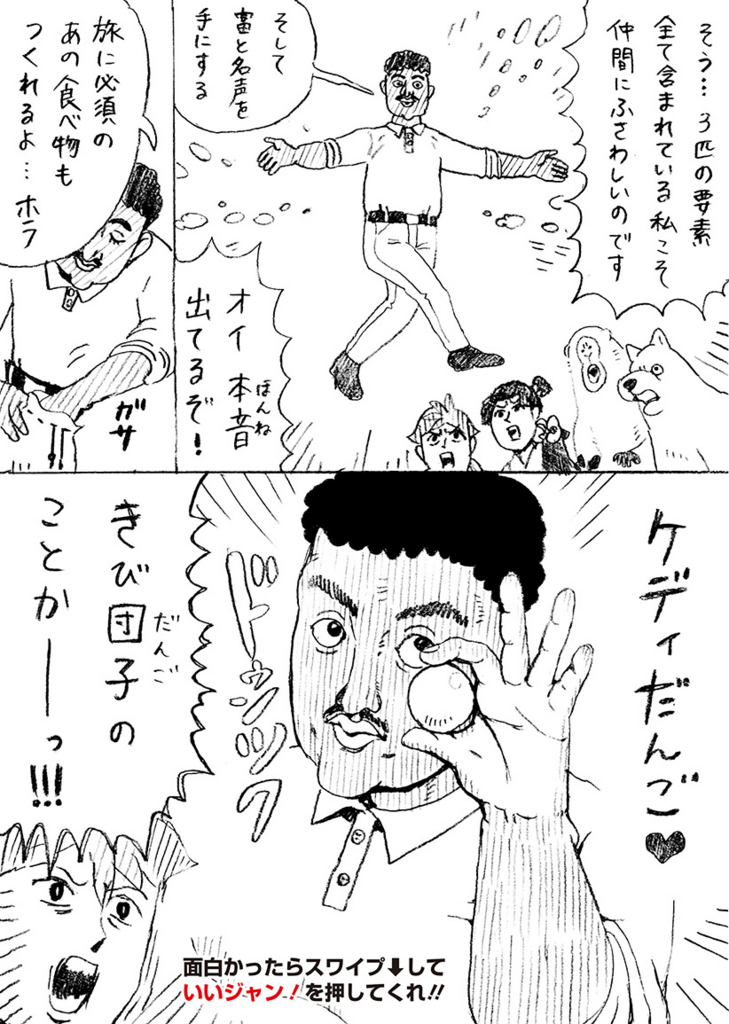 そう…3匹の要素
全て含まれている私こそ
仲間にふさわしいのです
そして
富と名声を
手にする
オイ本音
ほんね
出てるぞ!
旅に必須の
あの食べ物も
つくれるよ…ホラ
ガサ
ケディだんご♥
ドゥンッ
きび団子の
だんご
ことかーーっ!!!
面白かったらスワイプ↓して
いいジャン!を押してくれ!!